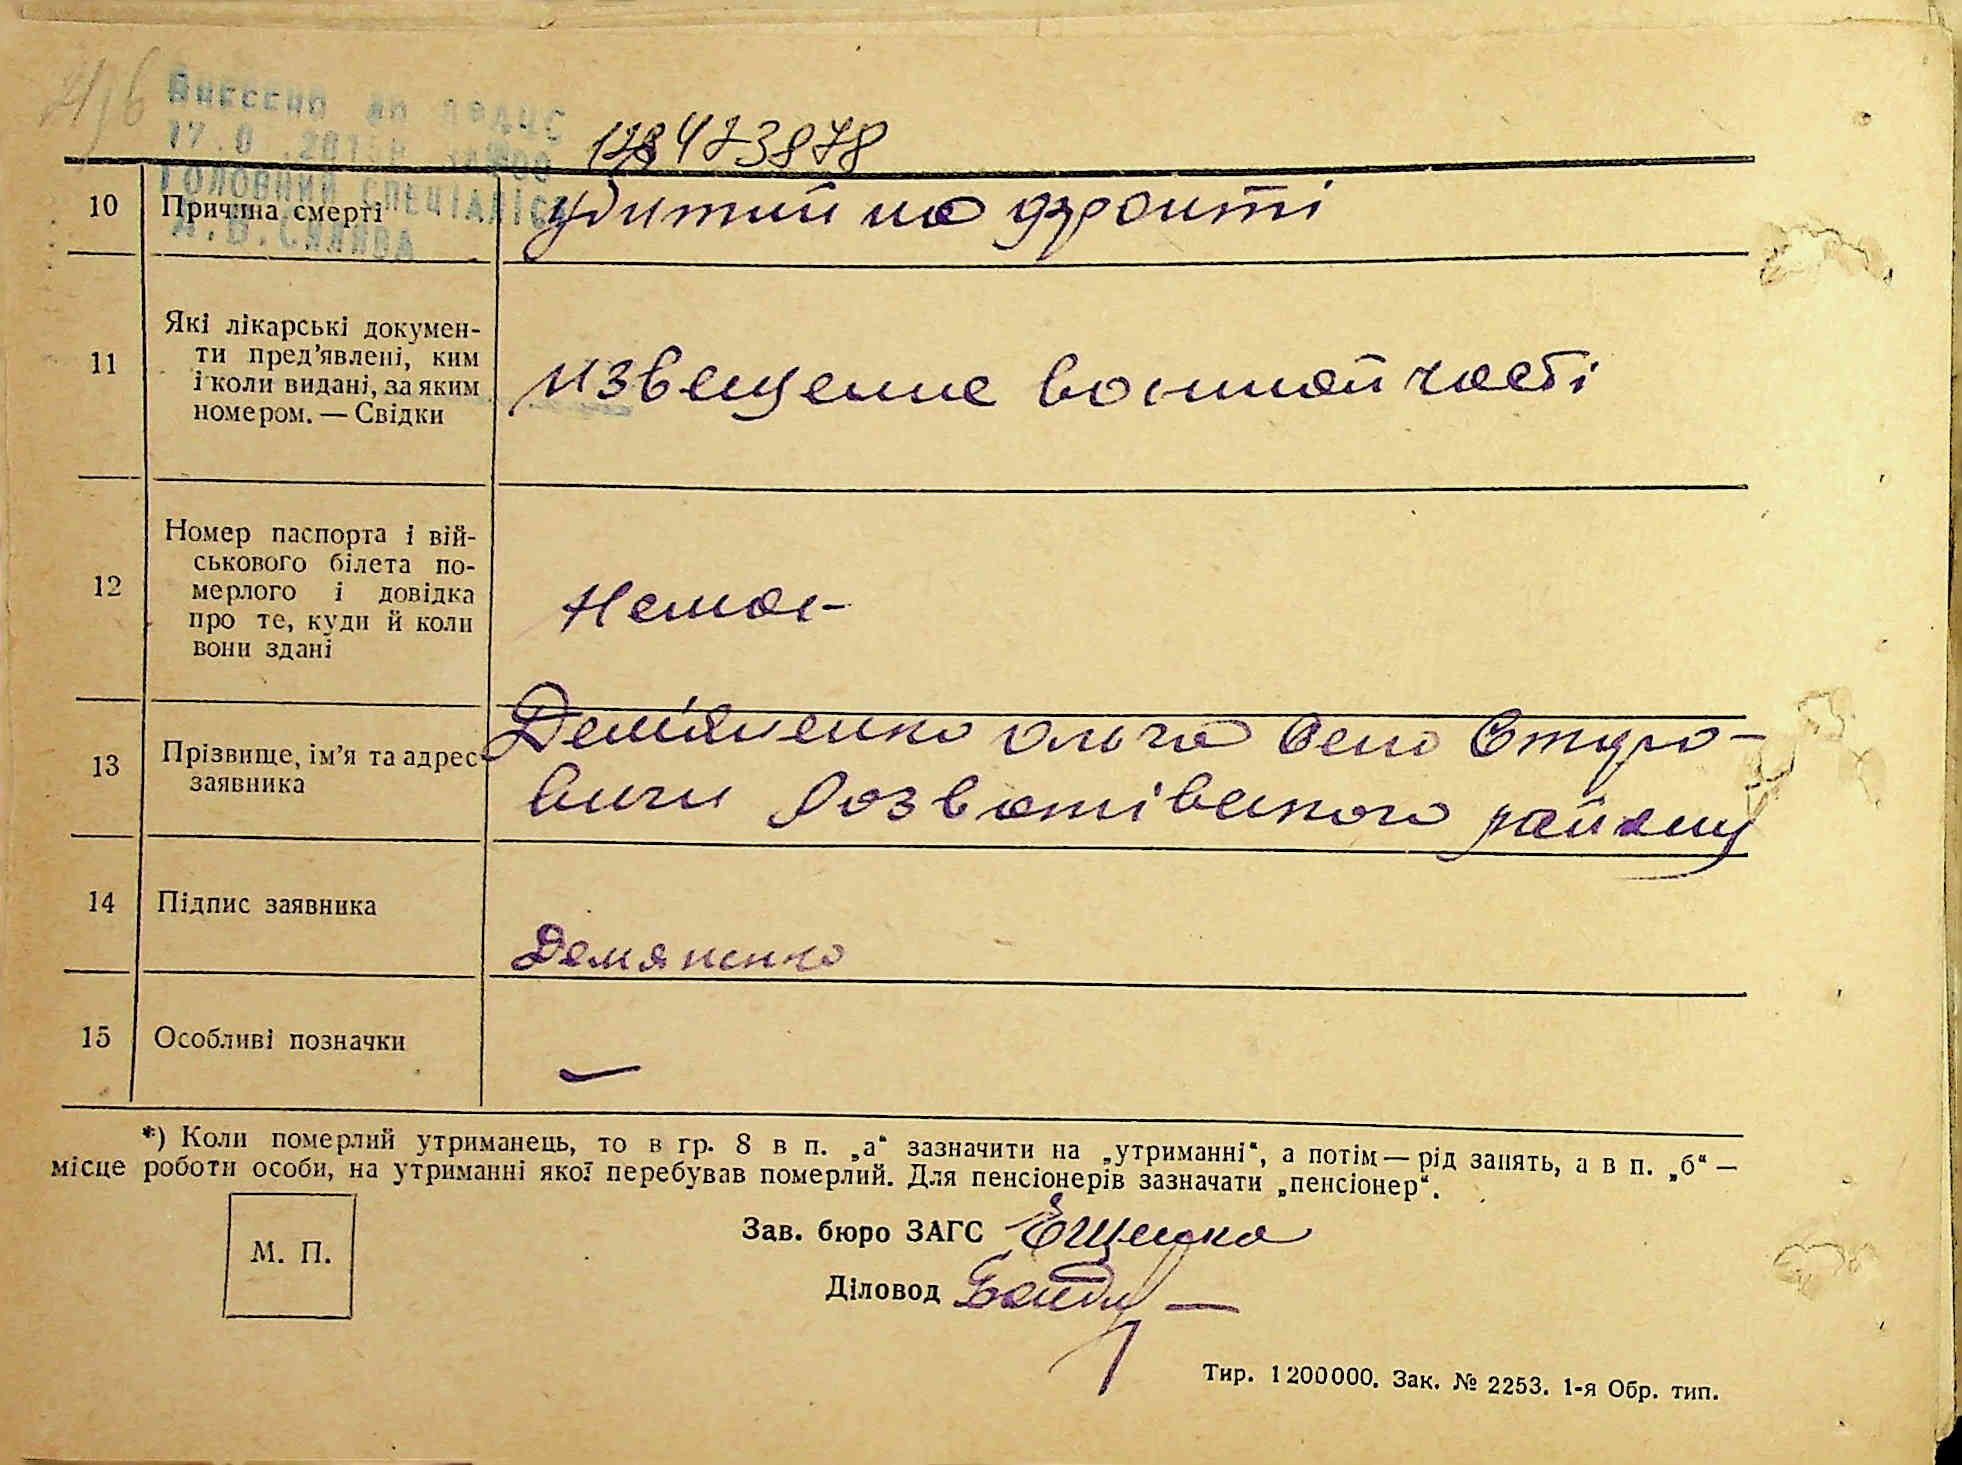 Внесено до ДРАЦС
ГОЛОВНИЙ СПЕЦІАЛІСТ
473878
10 Причина смерті убитий на фронті
11 Які лікарські докумен-
ти пред’явлені, ким
і коли видані, за яким
номером. — Свідки
извещение воинной части
12 Номер паспорта і вій-
ськового білета по-
мерлого і довідка
про те, куди й коли
вони здані
Немає-
13 Прізвище, ім’я та адрес
заявника
Демʼяненко Ольга село
вичи Розватівського району
14 Підпис заявника
Демяненко
15 Особливі позначки
—
*) Коли померлий утриманець, то в гр. 8 в п. „а“ зазначити на „утриманні“, а потім — рід занять, а в п. „б“ —
місце роботи особи, на утриманні якої перебував померлий. Для пенсіонерів зазначати „пенсіонер“.
М. П.
Зав. бюро ЗАГС
Діловод
Тир. 1200000. Зак. № 2253. 1-я Обр. тип.